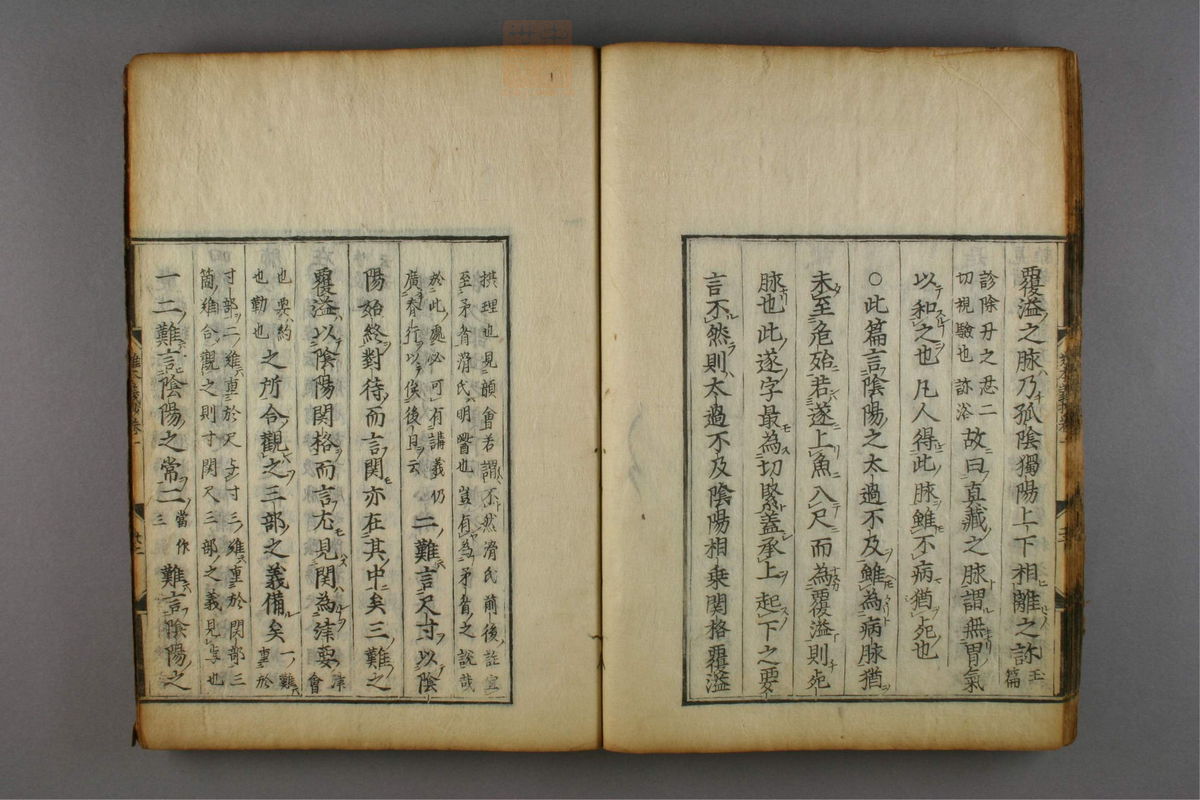 覆溢之脉乃孤陰獨陽上下相離之診 玉篇
診除刄之忍二切視驗也 診浴 故曰眞藏之脉謂無胃氣
以和之也凡人得此脉雖不病猶死也
○此篇言陰陽之太過不及雖為病脉猶
未至危殆若遂上魚入尺而為覆溢則死
脉也此遂字最為切緊蓋承上起下之要
言不然則太過不及陰陽相乗関格覆溢
撰理也見韻會若謂不然滑氏前後註豈
至矛盾滑氏明醫也豈有為矛盾之説哉
於此處必可有講義仍
廣脊行以俟後日云 二難言尺寸以陰
陽始終對待而言関亦在其中矣三難之
覆溢以陰陽関格而言尤見関為津要 津會
也要約也勤也 之所合觀之三部之義備矣 一難重於
寸部二難重於尺与寸三難重於関部三
箇難合觀之則寸関尺三部之義見矣也
一二難言陰陽之常二 當作三 難言陰陽之